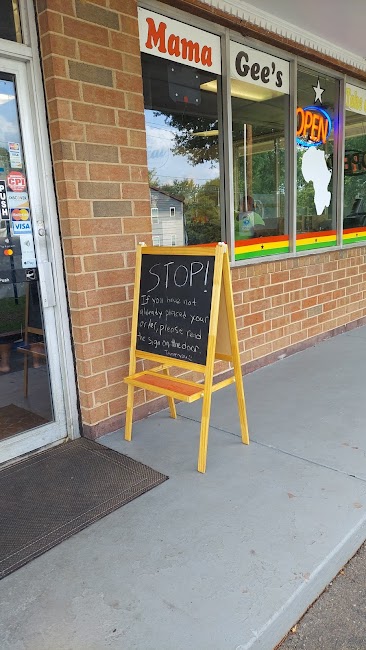 Mama
Gee's
OPEN
STOP!
If you have not
already placed your
order, please read
the sign on the door
CPI
VISA
VISA